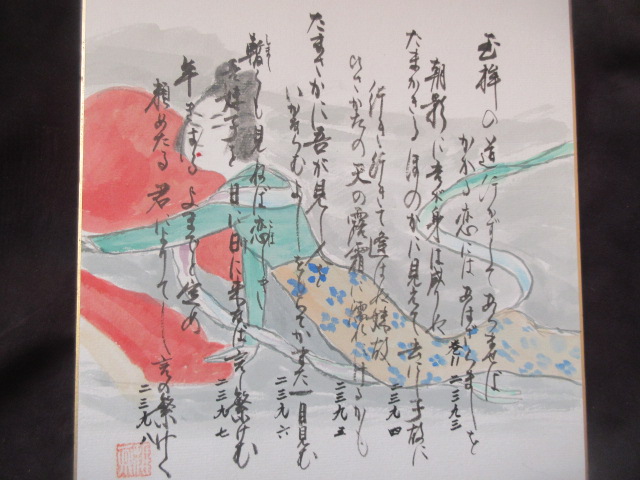 玉桙の道行かずしてあらませば
かかる恋には あはざらましを
巻11 二三九三
朝影に吾が身は成りぬ
たまかきるほのかに見えて去にし子故に
二三九四
行き行きて逢はぬ妹故
ひさかたの天の露霜に濡れにけるかも
二三九五
たまさかに吾が見し人を
いかならむよしをもちてかまた一目見む
二三九六
暫くも見ねば恋しき
吾妹子を日に日に来なば言の繁けむ
二三九七
年きはる よまでと定め
頼めたる君によりてし言の繁けく
二三九八